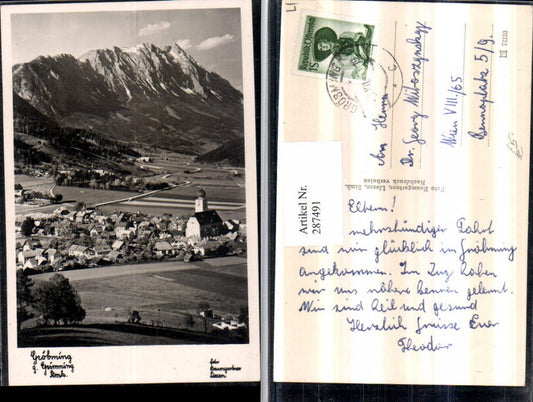 Gröbming
g. Grimming
Stmk.
Foto
Baumgartner
Liezen.
Artikel Nr.
287491
An Herrn
Dr. Georg
Wien VIII./65
Bennoplatz 5/9.
Foto Baumgartner, Liezen, Stmk.
Nachdruck verboten
mehrstündiger Fahrt
sind wir glücklich in Gröbming
angekommen. Im Zug haben
wir uns näher kennen gelernt.
Wir sind heil und gesund
Herzlich Grüsse Euer
Theodor